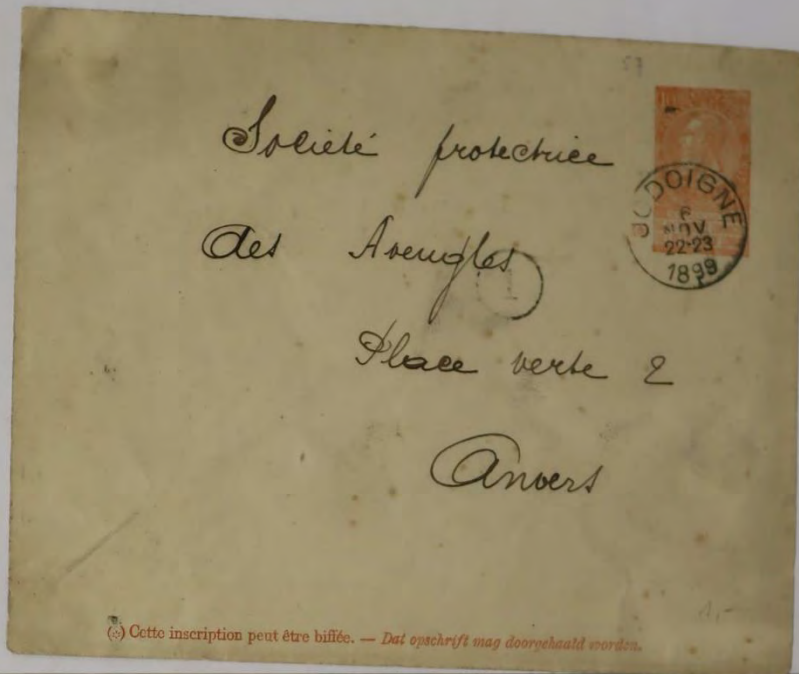 57
Société protectrice
des Aveugles
1
Place verte 2
Anvers
JODOIGNE
6
NOV
22-23
1899
1,-
(*) Cette inscription peut être biffée. — Dat opschrift mag doorgehaald worden.